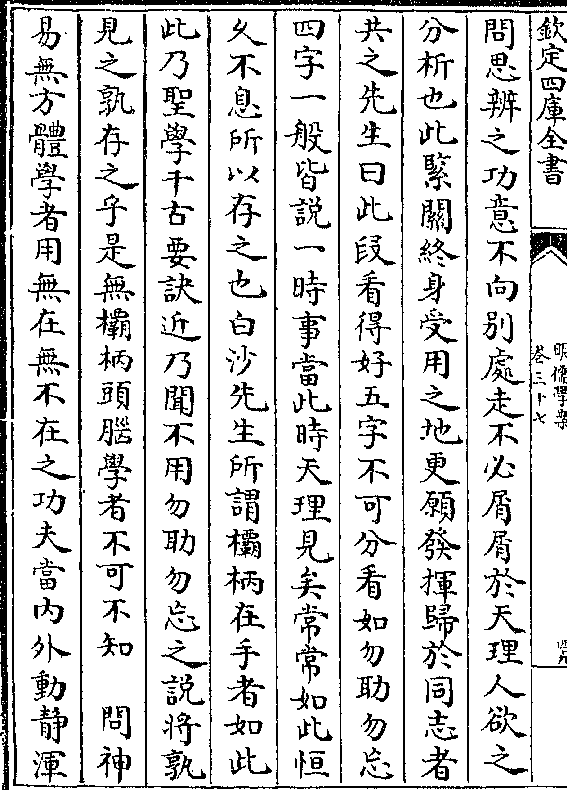 欽定四庫全書
明儒學案
卷三十七
問思辨之功意不向别處走不必屑屑於天理人欲之
分析也此緊關終身受用之地更願發揮歸於同志者
共之先生曰此叚看得好五字不可分看如勿助勿忘
四字一般皆説一時事當此時天理見矣常常如此恒
乆不息所以存之也白沙先生所謂欛柄在手者如此
此乃聖學千古要訣近乃聞不用勿助勿忘之説將孰
見之孰存之乎是無欛柄頭腦學者不可不知　問神
易無方體學者用無在無不在之功夫當内外動静渾